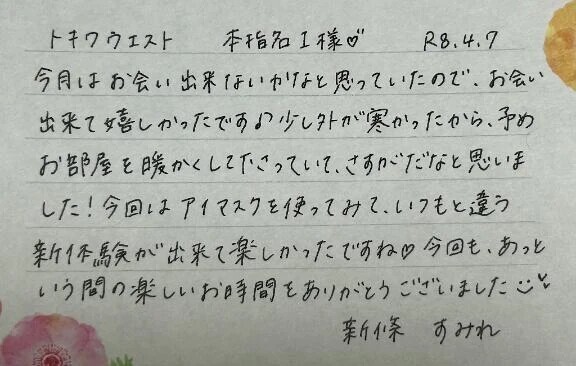 トキワウエスト 本指名 I様♡ R8.4.7
今月はお会い出来ないかなと思っていたので、お会い
出来て嬉しかったです♪少し外が寒かったから、予め
お部屋を暖かくして下さっていて、さすがだなと思いま
した!今回はアイマスクを使ってみて、いつもと違う
新体験が出来て楽しかったですね♡今回も、あっと
いう間の楽しいお時間をありがとうございました
新條 すみれ